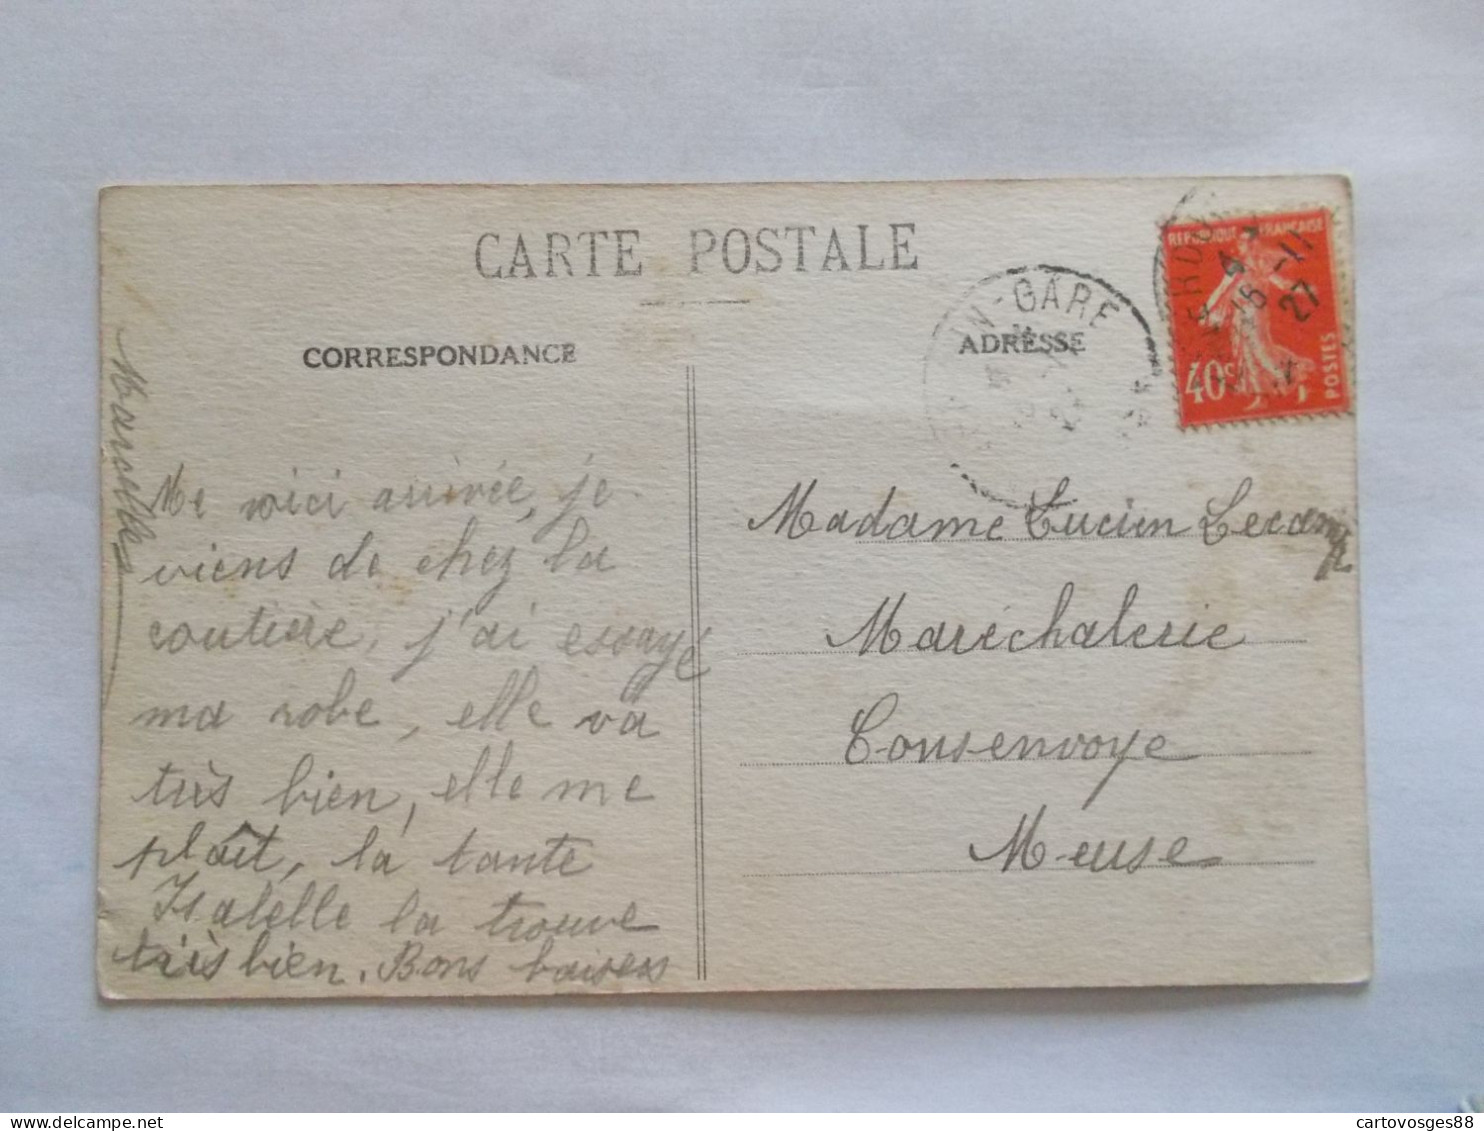 CARTE POSTALE
CORRESPONDANCE
Me voici arrivée, je
viens de chez la
coutière, j'ai essayé
ma robe, elle va
très bien, elle me
plaît, la tante
Isabelle la trouve
très bien. Bons baisers
Marcelle
ADRESSE
Madame Lucien Lecamp
Maréchalerie
Consenvoye
Meuse
REPUBLIQUE FRANÇAISE
40c
POSTES
VERDUN-GARE
15 -11
27
cartovosges88